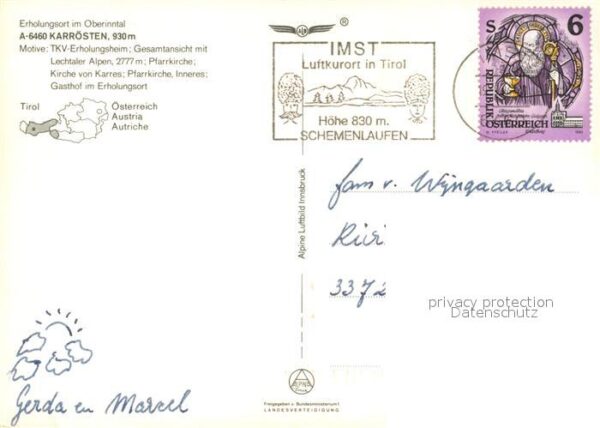 Erholungsort im Oberinntal
A-6460 KARRÖSTEN, 930 m
Motive: TKV-Erholungsheim; Gesamtansicht mit
Lechtaler Alpen, 2777 m; Pfarrkirche;
Kirche von Karres; Pfarrkirche, Inneres;
Gasthof im Erholungsort
Tirol
Österreich
Austria
Autriche
®
IMST
Luftkurort in Tirol
Höhe 830 m.
SCHEMENLAUFEN
S 6
REPUBLIK
ÖSTERREICH
fam v. Wijngaarden
3372
privacy protection
Datenschutz
Alpine Luftbild Innsbruck
Gerda en Marcel
Freigegeben v. Bundesministerium f.
LANDESVERTEIDIGUNG